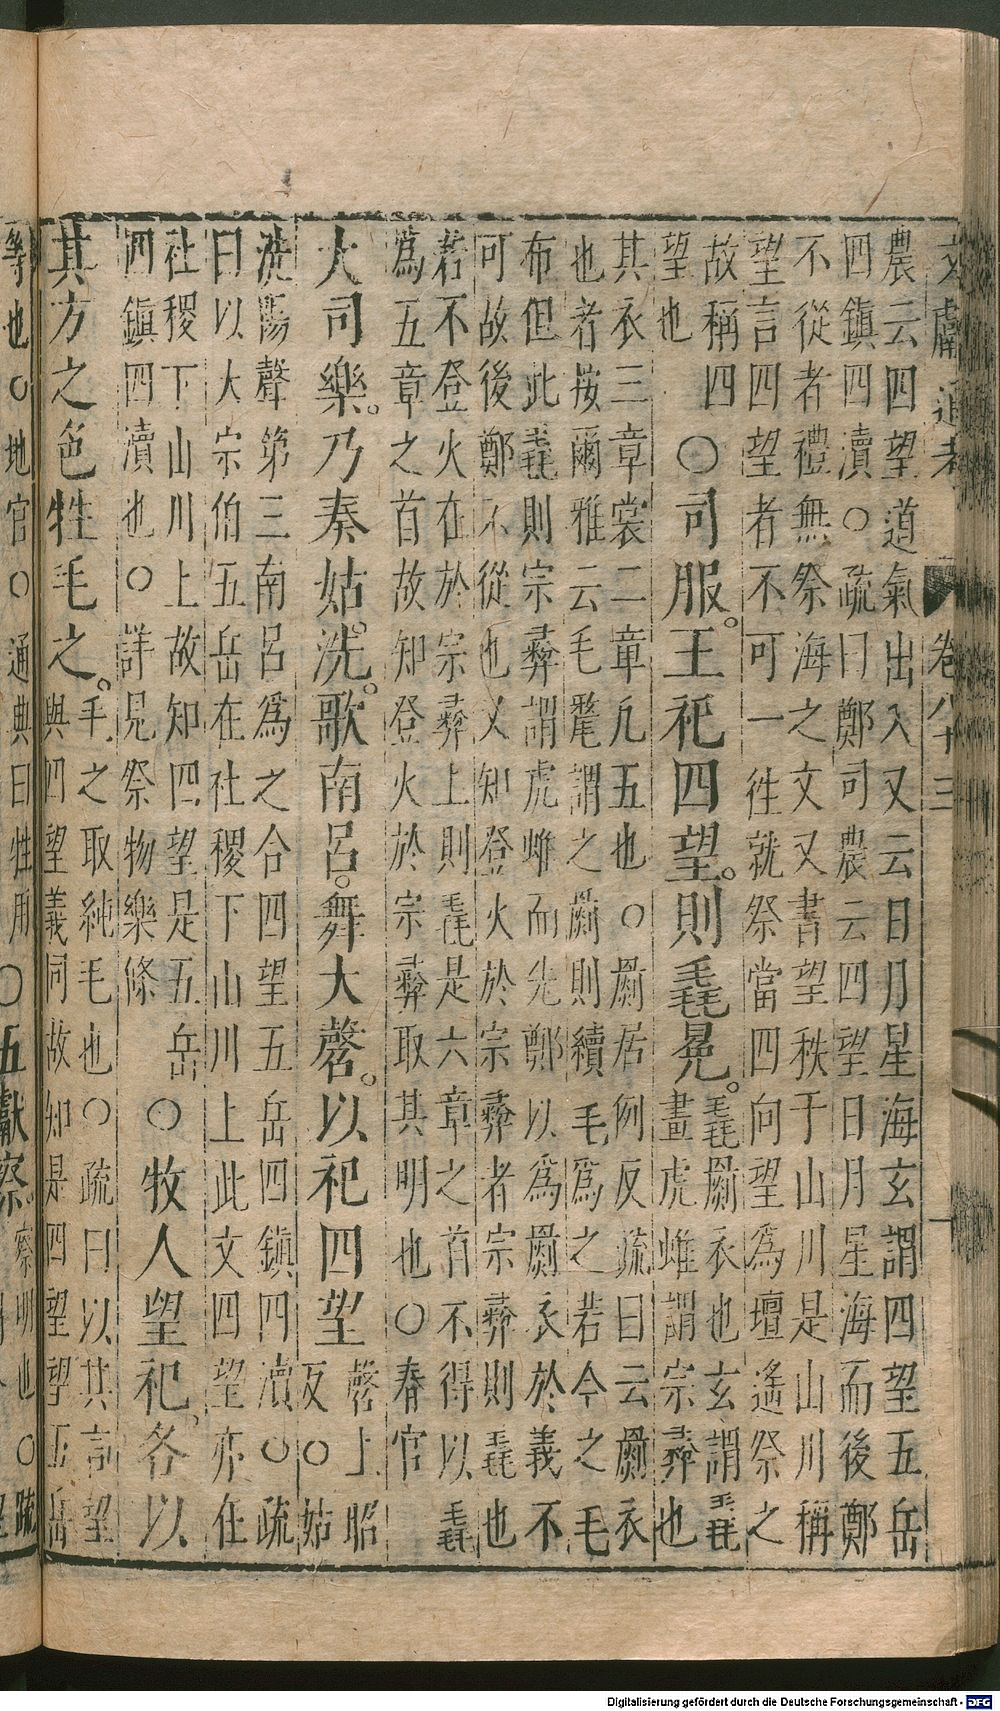 文獻通考 卷八十三 一
農云四望道氣出入又云日月星海玄謂四望五岳
四鎮四瀆○疏曰鄭司農云四望日月星海而後鄭
不從者禮無祭海之文又書望秩于山川是山川稱
望言四望者不可一徃就祭當四向望為壇遙祭之
故稱四
望也
○司服。王祀四望。則毳冕。
毳罽衣也玄謂毳
畫虎蜼謂宗彝也
其衣三章裳二章凡五也○罽居例反疏曰云罽衣
也者按爾雅云毛氂謂之罽則續毛為之若今之毛
布但此毳則宗彝謂虎蜼而先鄭以為罽衣於義不
可故後鄭不從也又知登火於宗彝者宗彝則毳也
若不登火在於宗彝上則毳是六章之首不得以毳
為五章之首故知登火於宗彝取其明也○春官
大司樂。乃奏姑。洗。歌南呂。舞大㲈。以祀四望
㲈上昭
反○姑
洗陽聲第三南呂為之合四望五岳四鎮四瀆○疏
曰以大宗伯五岳在社稷下山川上此文四望亦在
社稷下山川上故知四望是五岳
四鎮四瀆也○詳見祭物樂條
○牧人望祀。各以
其方之色牲毛之。
毛之取純毛也○疏曰以其言望
與四望義同故知是四望望五岳
等也○地官○通典曰牲用
○五獻察
察明也○疏
Digitalisierung gefördert durch die Deutsche Forschungsgemeinschaft - DFG